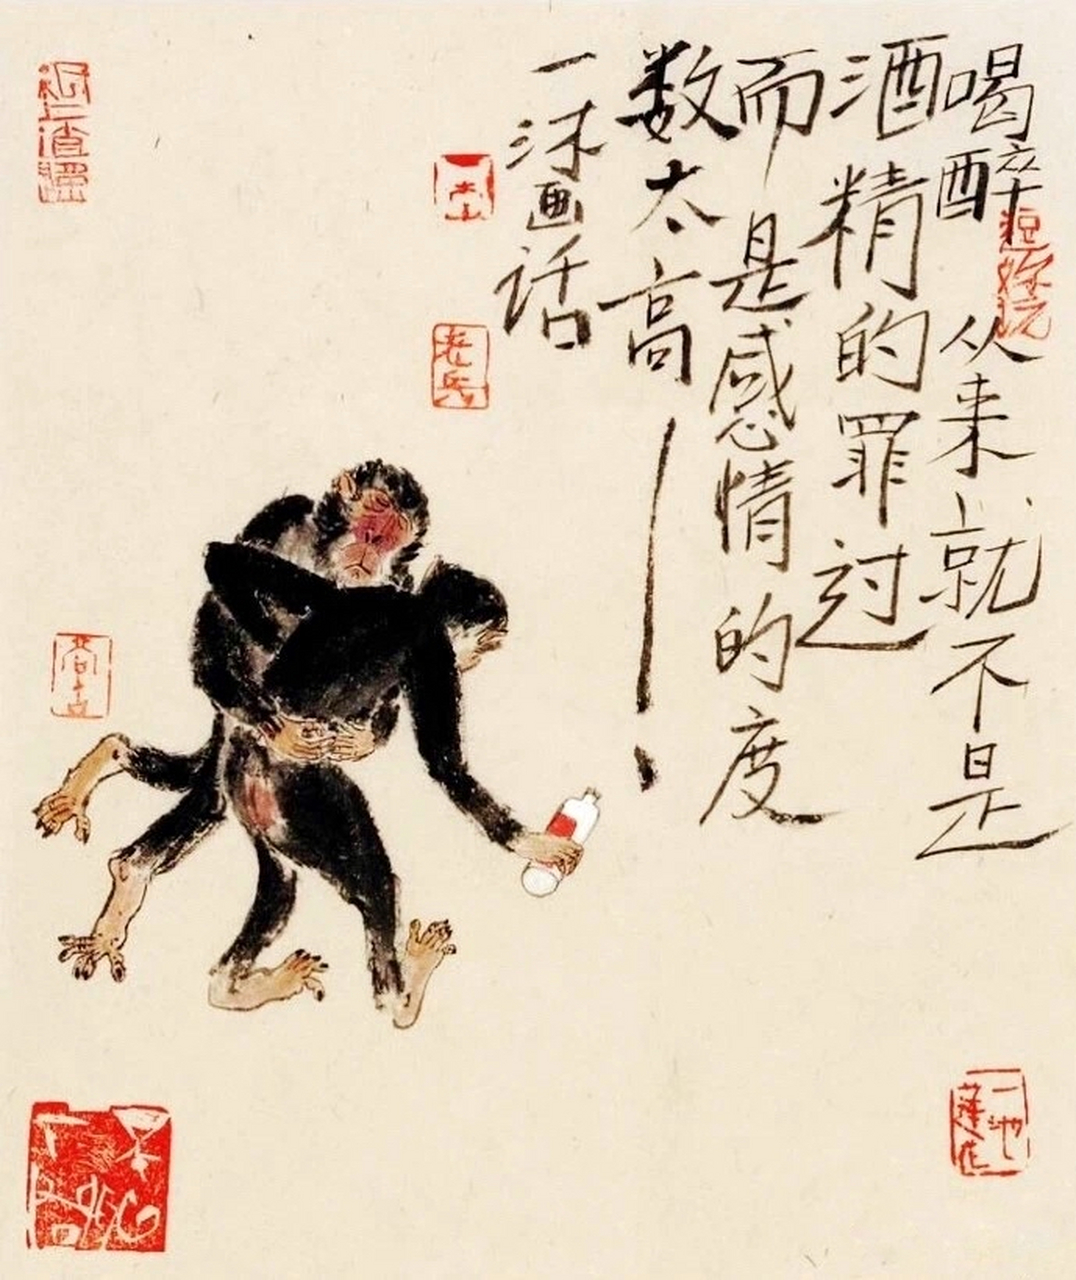 喝醉 从来就不是
酒精的罪过
而是感情的度
数太高！
一沫画话
老兵
一池
莲花